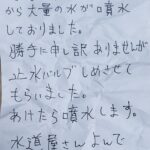 から大量の水が噴水
しておりました。
勝手に申し訳ありませんが
止水バルブしめさせて
もらいました。
あけたら噴水します。
水道屋さんよんで